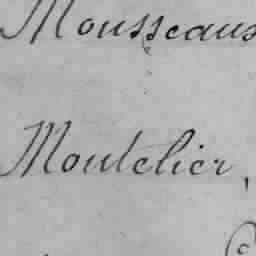 Mousseaux
Moutelier,